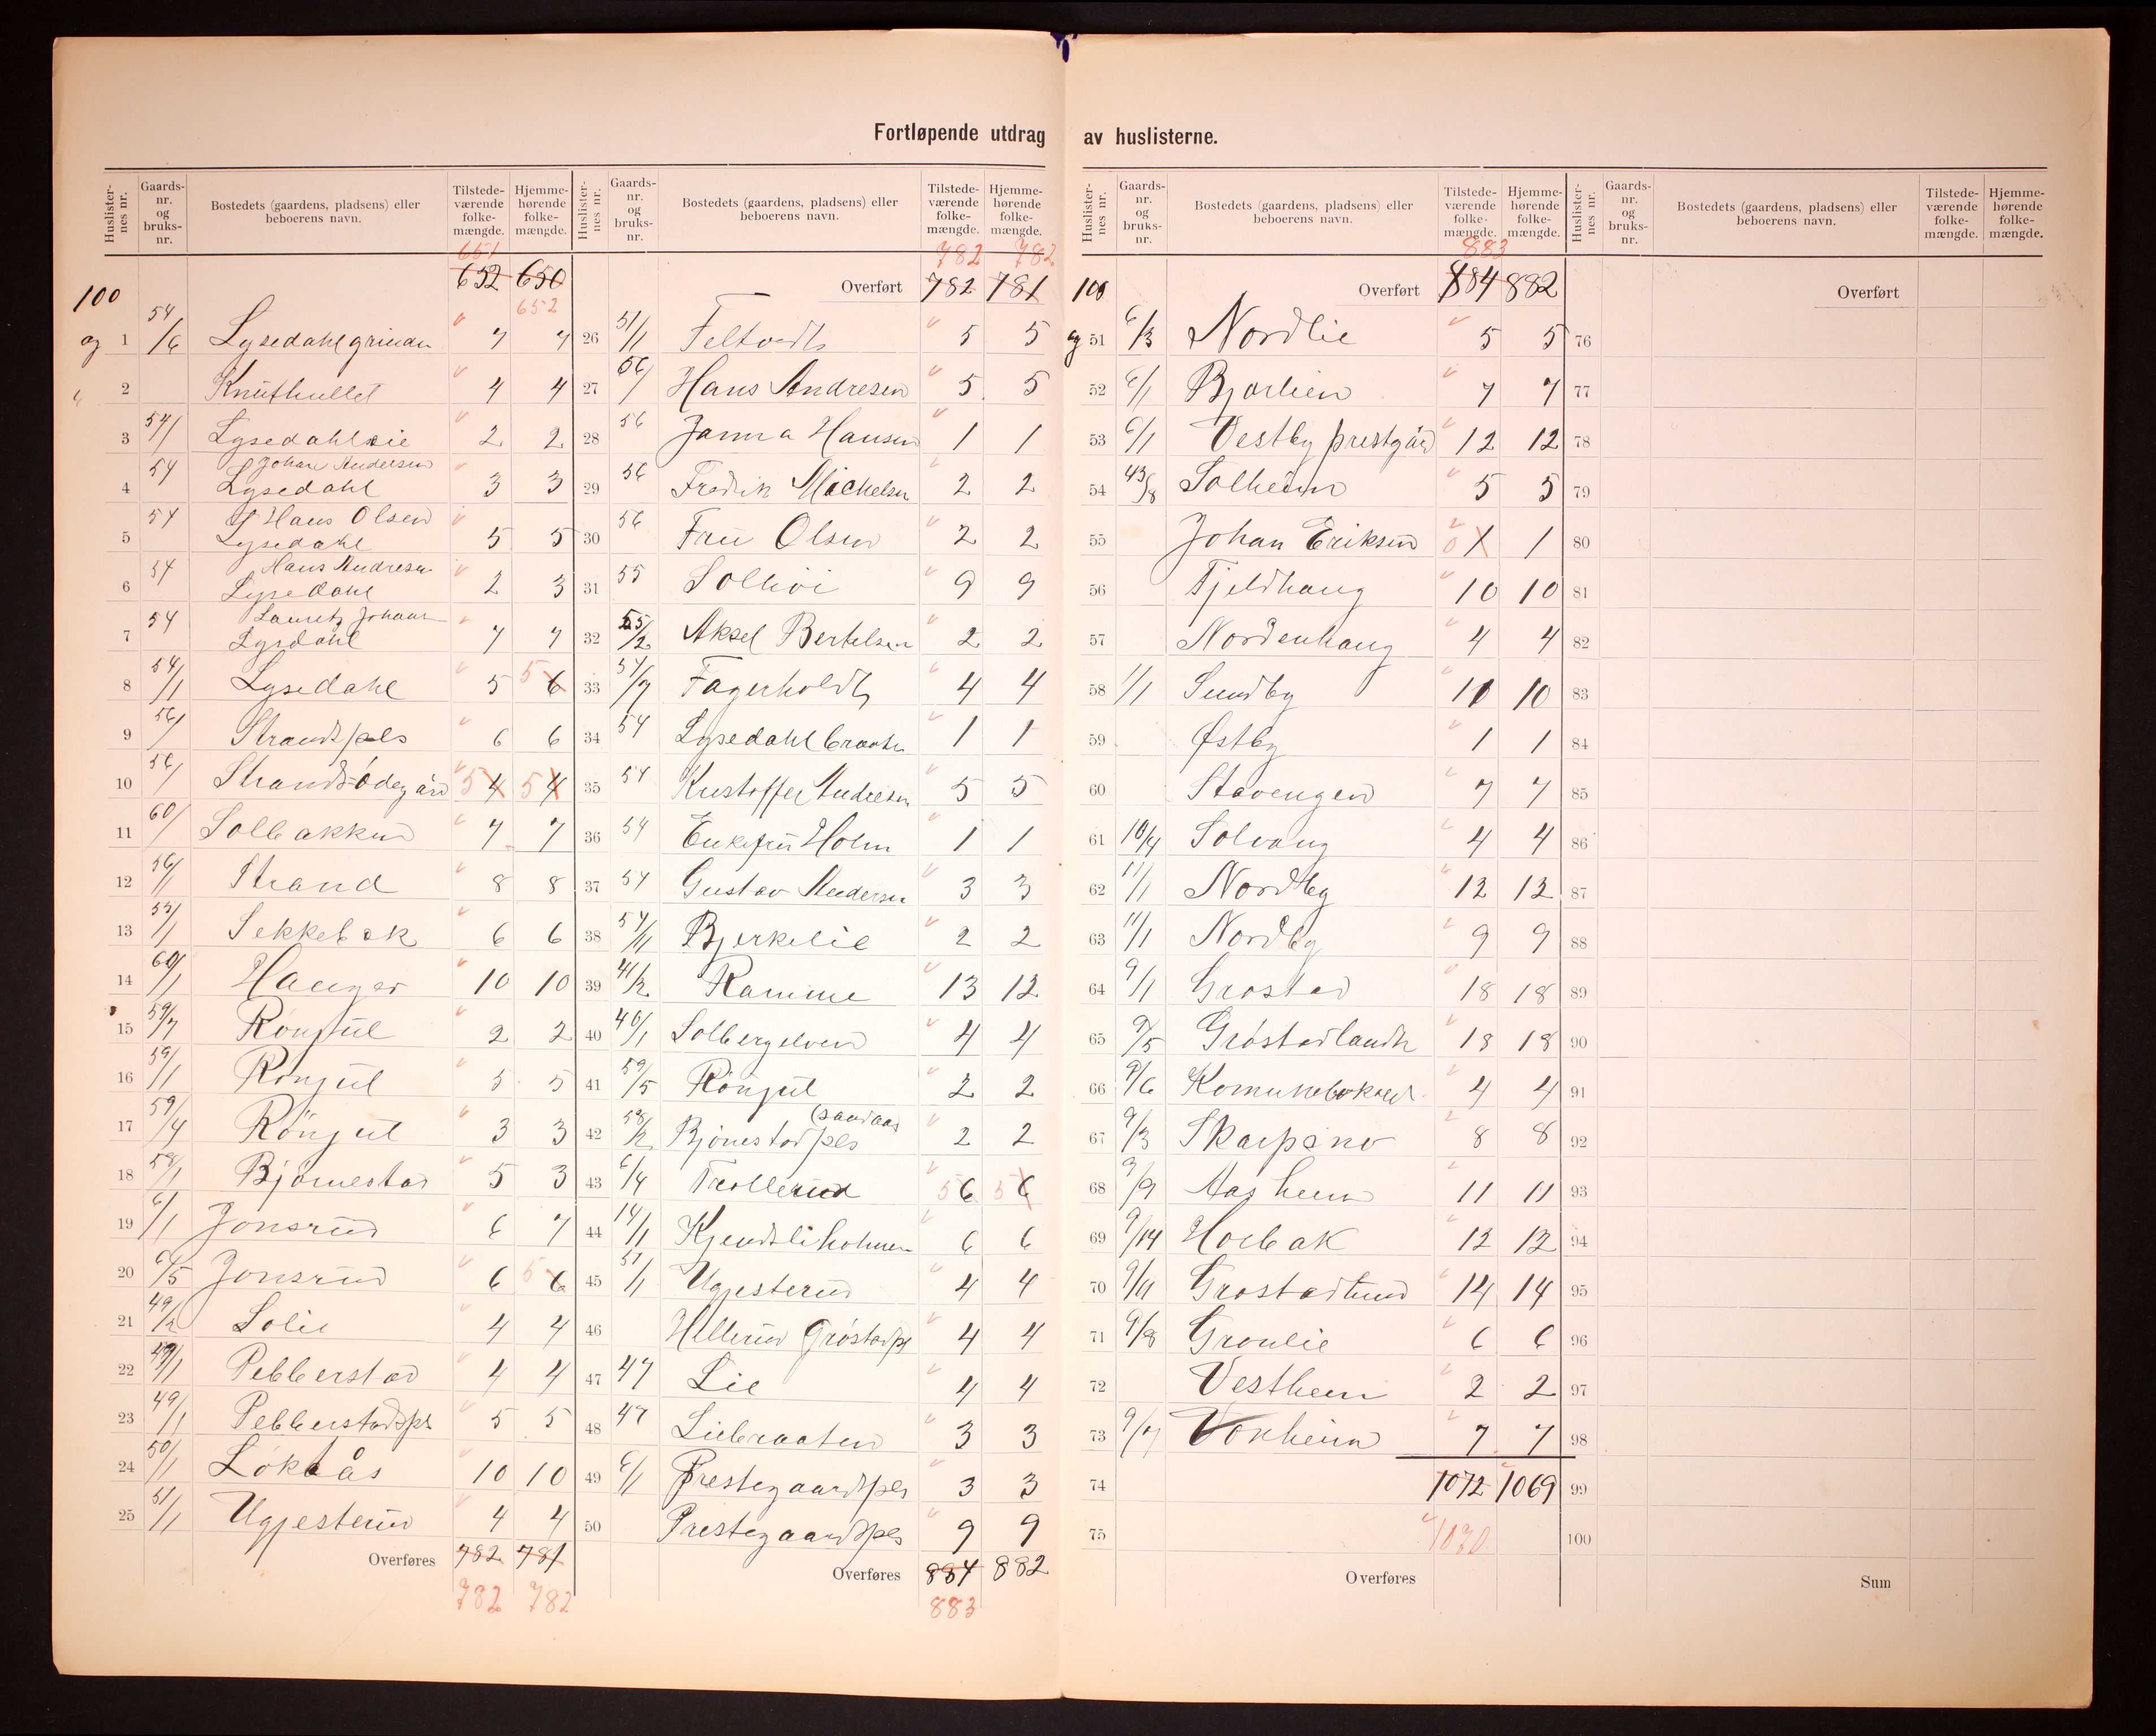 Fortløpende utdrag av huslisterne.
Huslisternes nr. Gaardsnr. og bruksnr. Bostedets (gaardens, pladsens) eller beboerens navn. Tilstedeværende folkemængde. Hjemmehørende folkemængde.
651
652 650
652
100
og 1 54/6 Lysedahlgrinden 7 7
" 2 Knuthullet 4 4
3 54/1 Lysedahlseie 2 2
4 54 Johan Andersen Lysedahl 3 3
5 54 Hans Olsen Lysedahl 5 5
6 54 Hans Andresen Lysedahl 2 3
7 54 Lauritz Johans Lysdahl 7 7
8 54/1 Lysedahl 5 5 6
9 56/ Strandspls 6 6
10 56/ Strandsødegård 5 4 5 4
11 60/ Solbakken 7 7
12 56/1 Strand 8 8
13 53/1 Sekkebæk 6 6
14 60/1 Hauger 10 10
15 59/7 Rönjul 2 2
16 59/1 Rönjul 5 5
17 59/4 Rönjul 3 3
18 58/1 Björnestad 5 3
19 6/1 Jonsrud 6 7
20 6/5 Jonsrud 6 5 6
21 49/2 Solie 4 4
22 49/1 Pebberstad 4 4
23 49/1 Pebberstadspl 5 5
24 50/1 Løkeås 10 10
25 51/1 Ugjesterud 4 4
Overføres 782 781
782 782
Huslisternes nr. Gaardsnr. og bruksnr. Bostedets (gaardens, pladsens) eller beboerens navn. Tilstedeværende folkemængde. Hjemmehørende folkemængde.
782 782
Overført 782 781
26 51/1 Feltvedt 5 5
27 56/ Hans Andresen 5 5
28 56 Janna Hansen 1 1
29 56 Fredrik Mickelsen 2 2
30 56 Fru Olsen 2 2
31 55 Solhøi 9 9
32 55/2 Aksel Bertelsen 2 2
33 54/7 Fagerholdt 4 4
34 54 Lysedahlbraaten 1 1
35 54 Kristoffer Andresen 5 5
36 54 Enkefru Holm 1 1
37 54 Gustav Andersen 3 3
38 54/11 Bjerkelie 2 2
39 41/2 Ramme 13 12
40 46/1 Solbergelven 4 4
41 59/5 Rönjul 2 2
42 58/2 Bjönestadpls (sandaas 2 2
43 6/4 Trollerud 5 6 5 6
44 14/1 Kjendsliholmen 6 6
45 51/1 Ugjesterud 4 4
46 Hellerud Gröstadpl 4 4
47 47 Lie 4 4
48 47 Liebraaten 3 3
49 6/1 Prestegaardspls 3 3
50 Prestegaardspls 9 9
Overføres 884 882
883
Huslisternes nr. Gaardsnr. og bruksnr. Bostedets (gaardens, pladsens) eller beboerens navn. Tilstedeværende folkemængde. Hjemmehørende folkemængde.
883
100 Overført 884 882
og 51 6/3 Nordlie 5 5
52 6/1 Bjørlien 7 7
53 6/1 Vestby prestgård 12 12
54 43/8 Solheim 5 5
55 Johan Eriksen 0 1 1
56 Fjeldhaug 10 10
57 Nordenhaug 4 4
58 1/1 Sundby 10 10
59 Østby 1 1
60 Stavengen 7 7
61 10/4 Solvang 4 4
62 11/1 Nordby 12 12
63 11/1 Nordby 9 9
64 9/1 Grøstad 18 18
65 9/5 Grøstadlandh 18 18
66 9/6 Komunelokalet 4 4
67 9/3 Skarpsno 8 8
68 9/9 Aasheim 11 11
69 9/14 Holbæk 12 12
70 9/11 Grøstadtund 14 14
71 9/8 Grønlie 6 6
72 Vestheim 2 2
73 9/7 Voxheim 7 7
74 1072 1069
75 1070
Overføres
Huslisternes nr. Gaardsnr. og bruksnr. Bostedets (gaardens, pladsens) eller beboerens navn. Tilstedeværende folkemængde. Hjemmehørende folkemængde.
Overført
76
77
78
79
80
81
82
83
84
85
86
87
88
89
90
91
92
93
94
95
96
97
98
99
100
Sum